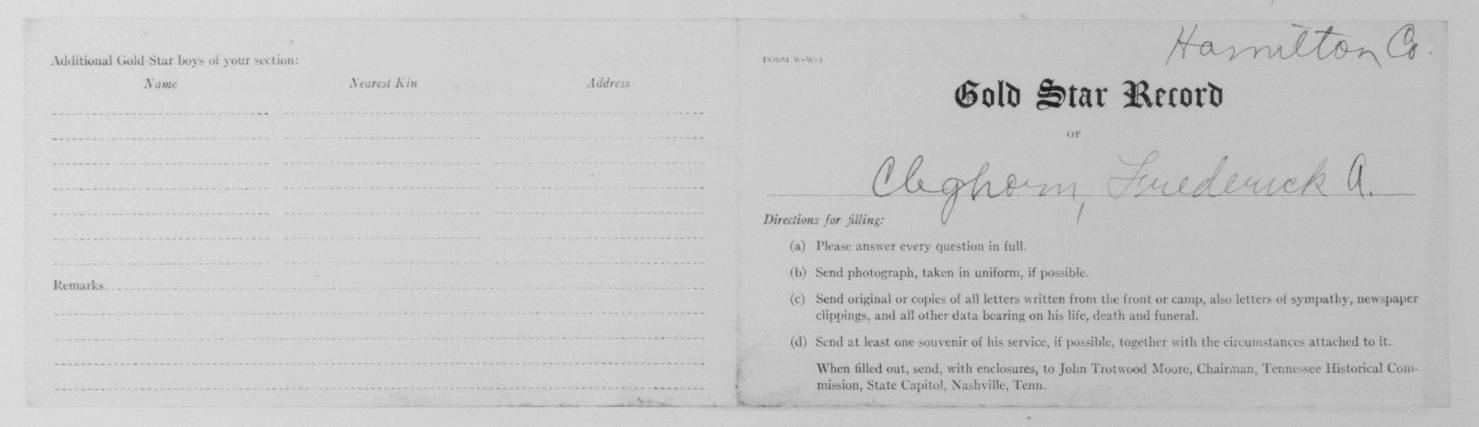 Additional Gold Star boys of your section:
Name Nearest Kin Address
Remarks
Hamilton Co.
FORM W-W-1
Gold Star Record
OF
Cleghorn, Frederick A.
Directions for filling:
(a) Please answer every question in full.
(b) Send photograph, taken in uniform, if possible.
(c) Send original or copies of all letters written from the front or camp, also letters of sympathy, newspaper
clippings, and all other data bearing on his life, death and funeral.
(d) Send at least one souvenir of his service, if possible, together with the circumstances attached to it.
When filled out, send, with enclosures, to John Trotwood Moore, Chairman, Tennessee Historical Com-
mission, State Capitol, Nashville, Tenn.